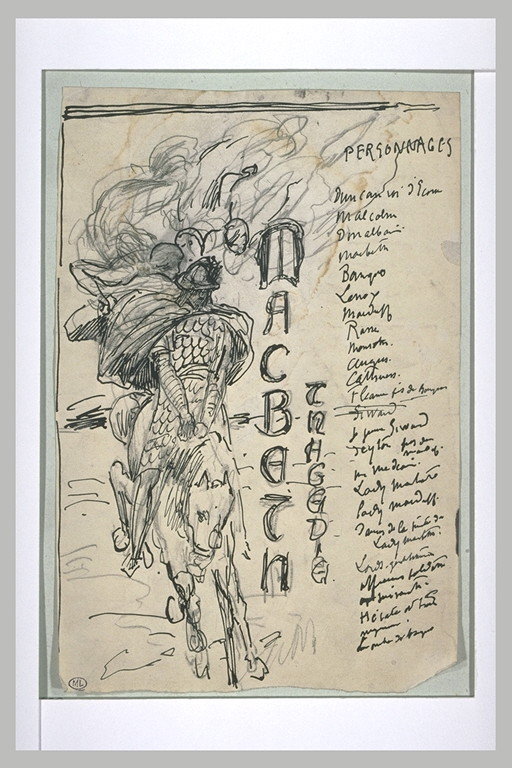 MACBETH
TRAGEDIE
PERSONNAGES
Duncan roi d'Ecosse
Malcolm
Donalbain
Macbeth
Banquo
Lenox
Macduff
Rosse
Menteth
Angus.
Cathness.
Fleance fils de Banquo
Siward
le jeune Siward
Seyton
un medecin
Lady Macbeth
Lady Macduff.
Lady Macbeth.
officiers soldats
Hécate et trois
ML